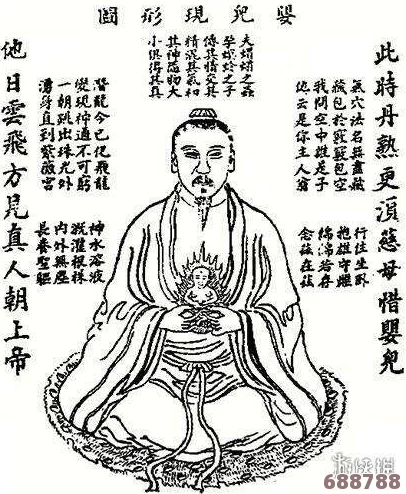 嬰兒現形圖
此時丹熟更須慈母惜嬰兒
氣穴法名無盡藏
藏包於竅竅包空
我問空中誰氏子
他云是你主人翁
行住坐臥
抱雄守雌
綿綿若存
念茲在茲
夫蜾蠃之蟲
孕螟蛉之子
傳其情交其
精混其氣和
其神隨物大
小俱得其真
潛龍今已化飛龍
變現神通不可窮
一朝跳出珠光外
湧身直到紫微宮
神水溶液
溉灌根株
內外無塵
長養聖軀
他日雲飛方見真人朝上帝
游侠网
688788